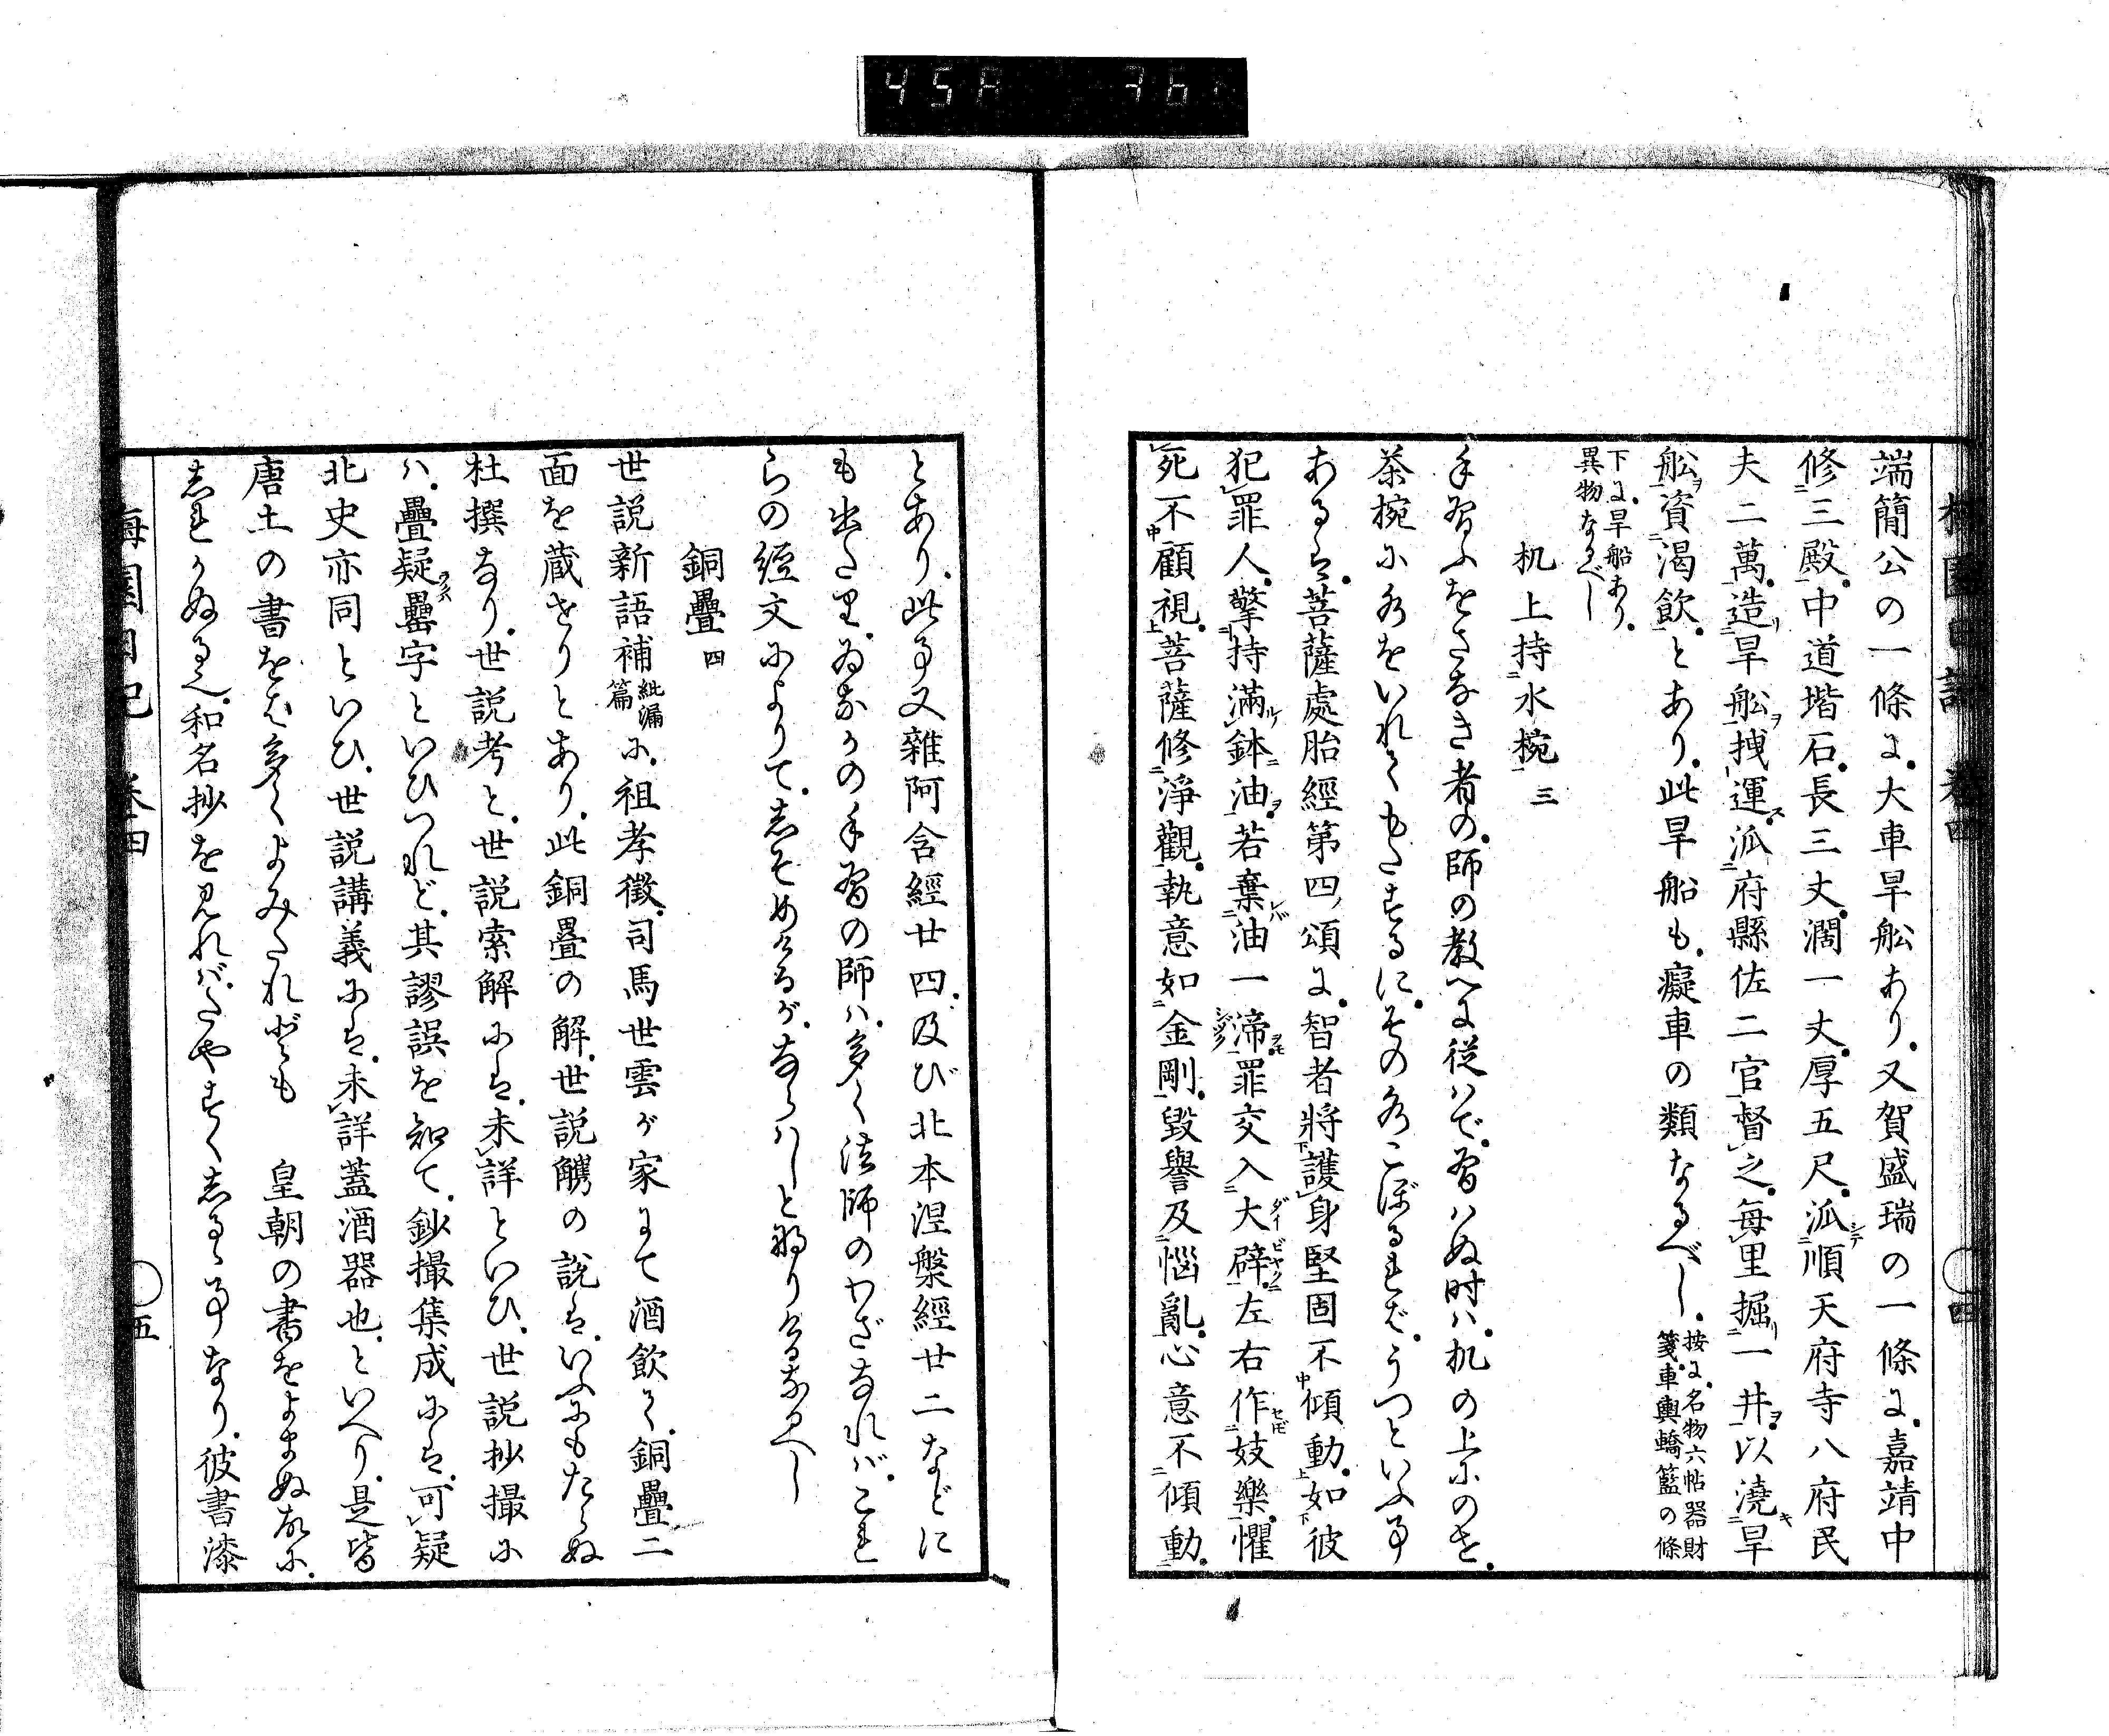 45A 76
梅園日記 巻四 〇四
端簡公の一條に、大車旱舩あり、又賀盛瑞の一條に、嘉靖中
修三殿、中道堦石、長三丈、濶一丈、厚五尺、派順天府寺八府民
夫二萬、造旱舩拽運、派府縣佐二官督之、每里掘一井、以澆旱
舩資渇飮、とあり、此旱船も、癡車の類なるべし、按に、名物六帖器財箋、車輿轎籃の條
下に、旱船あり、異物なるべし
机上持水椀 三
手習ふをさなき者の、師の教へに従はで、習はぬ時は、机の上にのせ、
茶椀に水をいれてもたするに、その水こぼるれば、うつといふ事
あるは、菩薩處胎經第四、頌に、智者將護身堅固不傾動、如彼
犯罪人、擎持滿鉢油、若棄油一渧、罪交入大辟、左右作妓樂、懼
死不顧視、菩薩修淨觀、執意如金剛、毀譽及惱亂、心意不傾動、
とあり、此事又雜阿含經廿四、及び北本涅槃經廿二などに
も出たり、ゐなかの手習の師は、多く法師のわざなれば、これ
らの經文によりて、しそめけるが、ならはしと成りけるなるべし
銅疊 四
世説新語補紕漏篇に、祖孝徵、司馬世雲が家にて酒飮て、銅疊二
面を蔵せりとあり、此銅疊の解、世説觹の説は、いふにもたらぬ
杜撰なり、世説考と、世説索解には、未詳といひ、世説抄撮に
ハ、疊疑罍字といひつれど、其謬誤を知て、鈔撮集成には、可疑
北史亦同といひ、世説講義には、未詳蓋酒器也、といへり、是皆
唐土の書をば多くよみたれども 皇朝の書をよまぬ故に、
しれかぬる也、和名抄を見れば、たやすくしるゝ事なり、彼書漆
梅園日記 巻四 〇五